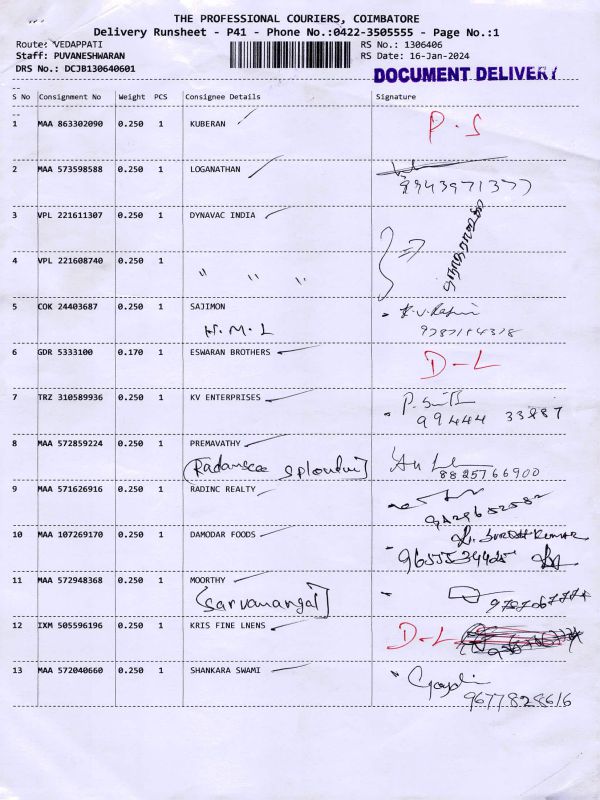 THE PROFESSIONAL COURIERS, COIMBATORE
Delivery Runsheet - P41 - Phone No.:0422-3505555 - Page No.:1
Route: VEDAPPATI RS No.: 1306406
Staff: PUVANESHWARAN RS Date: 16-Jan-2024
DRS No.: DCJB130640601 DOCUMENT DELIVERY
S No Consignment No Weight PCS Consignee Details Signature
1 MAA 863302090 0.250 1 KUBERAN P.S
2 MAA 573598588 0.250 1 LOGANATHAN
9943971377
3 VPL 221611307 0.250 1 DYNAVAC INDIA
4 VPL 221608740 0.250 1
" " "
5 COK 24403687 0.250 1 SAJIMON
H.M.L
6 GDR 5333100 0.170 1 ESWARAN BROTHERS D-L
7 TRZ 310589936 0.250 1 KV ENTERPRISES
99444 33887
8 MAA 572859224 0.250 1 PREMAVATHY
8825766900
9 MAA 571626916 0.250 1 RADINC REALTY
10 MAA 107269170 0.250 1 DAMODAR FOODS
9655534425
11 MAA 572948368 0.250 1 MOORTHY
(Sarvamangal)
12 IXM 505596196 0.250 1 KRIS FINE LNENS D-L
13 MAA 572040660 0.250 1 SHANKARA SWAMI
9677828616